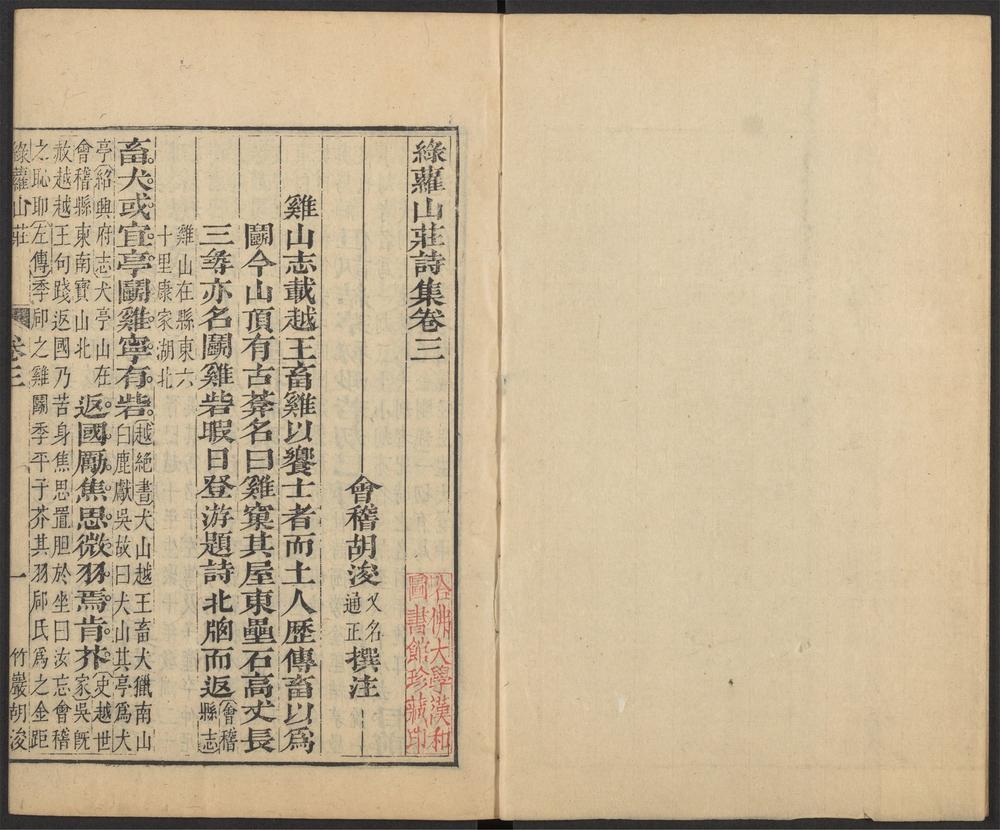 綠蘿山莊詩集卷三
會稽胡浚又名通正撰注
哈佛大學漢和
圖書館珍藏印
雞山志載越王畜雞以饗士者而土人歷傳畜以爲
鬭今山頂有古莾名曰雞窠其屋東壘石高丈長
三尋亦名鬭雞砦暇日登游題詩北牖而返會稽縣志
雞山在縣東六
十里康家湖北
畜犬或宜亭鬭雞寧有砦越絕書犬山越王畜犬獵南山
白鹿獻吳故曰犬山其亭爲犬
亭紹興府志犬亭山在
會稽縣東南寶山北
返國勵焦思微羽焉肯芥史越世家吳旣
赦越越王句踐返國乃苦身焦思置胆於坐曰汝忘會稽
之恥耶左傳季郈之雞鬭季平子芥其羽郈氏爲之金距
綠蘿山莊 卷三 一 竹巖胡浚